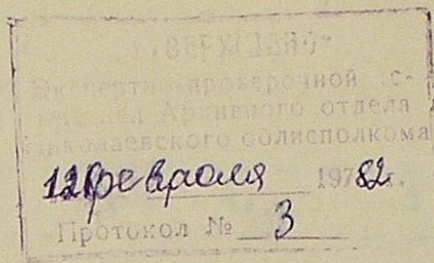 "УТВЕРЖДЕНО"
Экспертно-проверочной
Архивного отдела
Николаевского облисполкома
12 февраля 1982г.
Протокол № 3